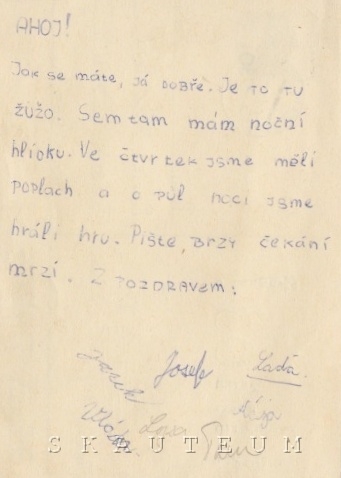 AHOJ!
Jak se máte, já dobře. Je to tu
žůžo. Sem tam mám noční
hlídku. Ve čtvrtek jsme měli
poplach a o půl noci jsme
hráli hru. Pište, brzy čekání
mrzí. Z pozdravem:
Josef Láďa
SKAUTEUM